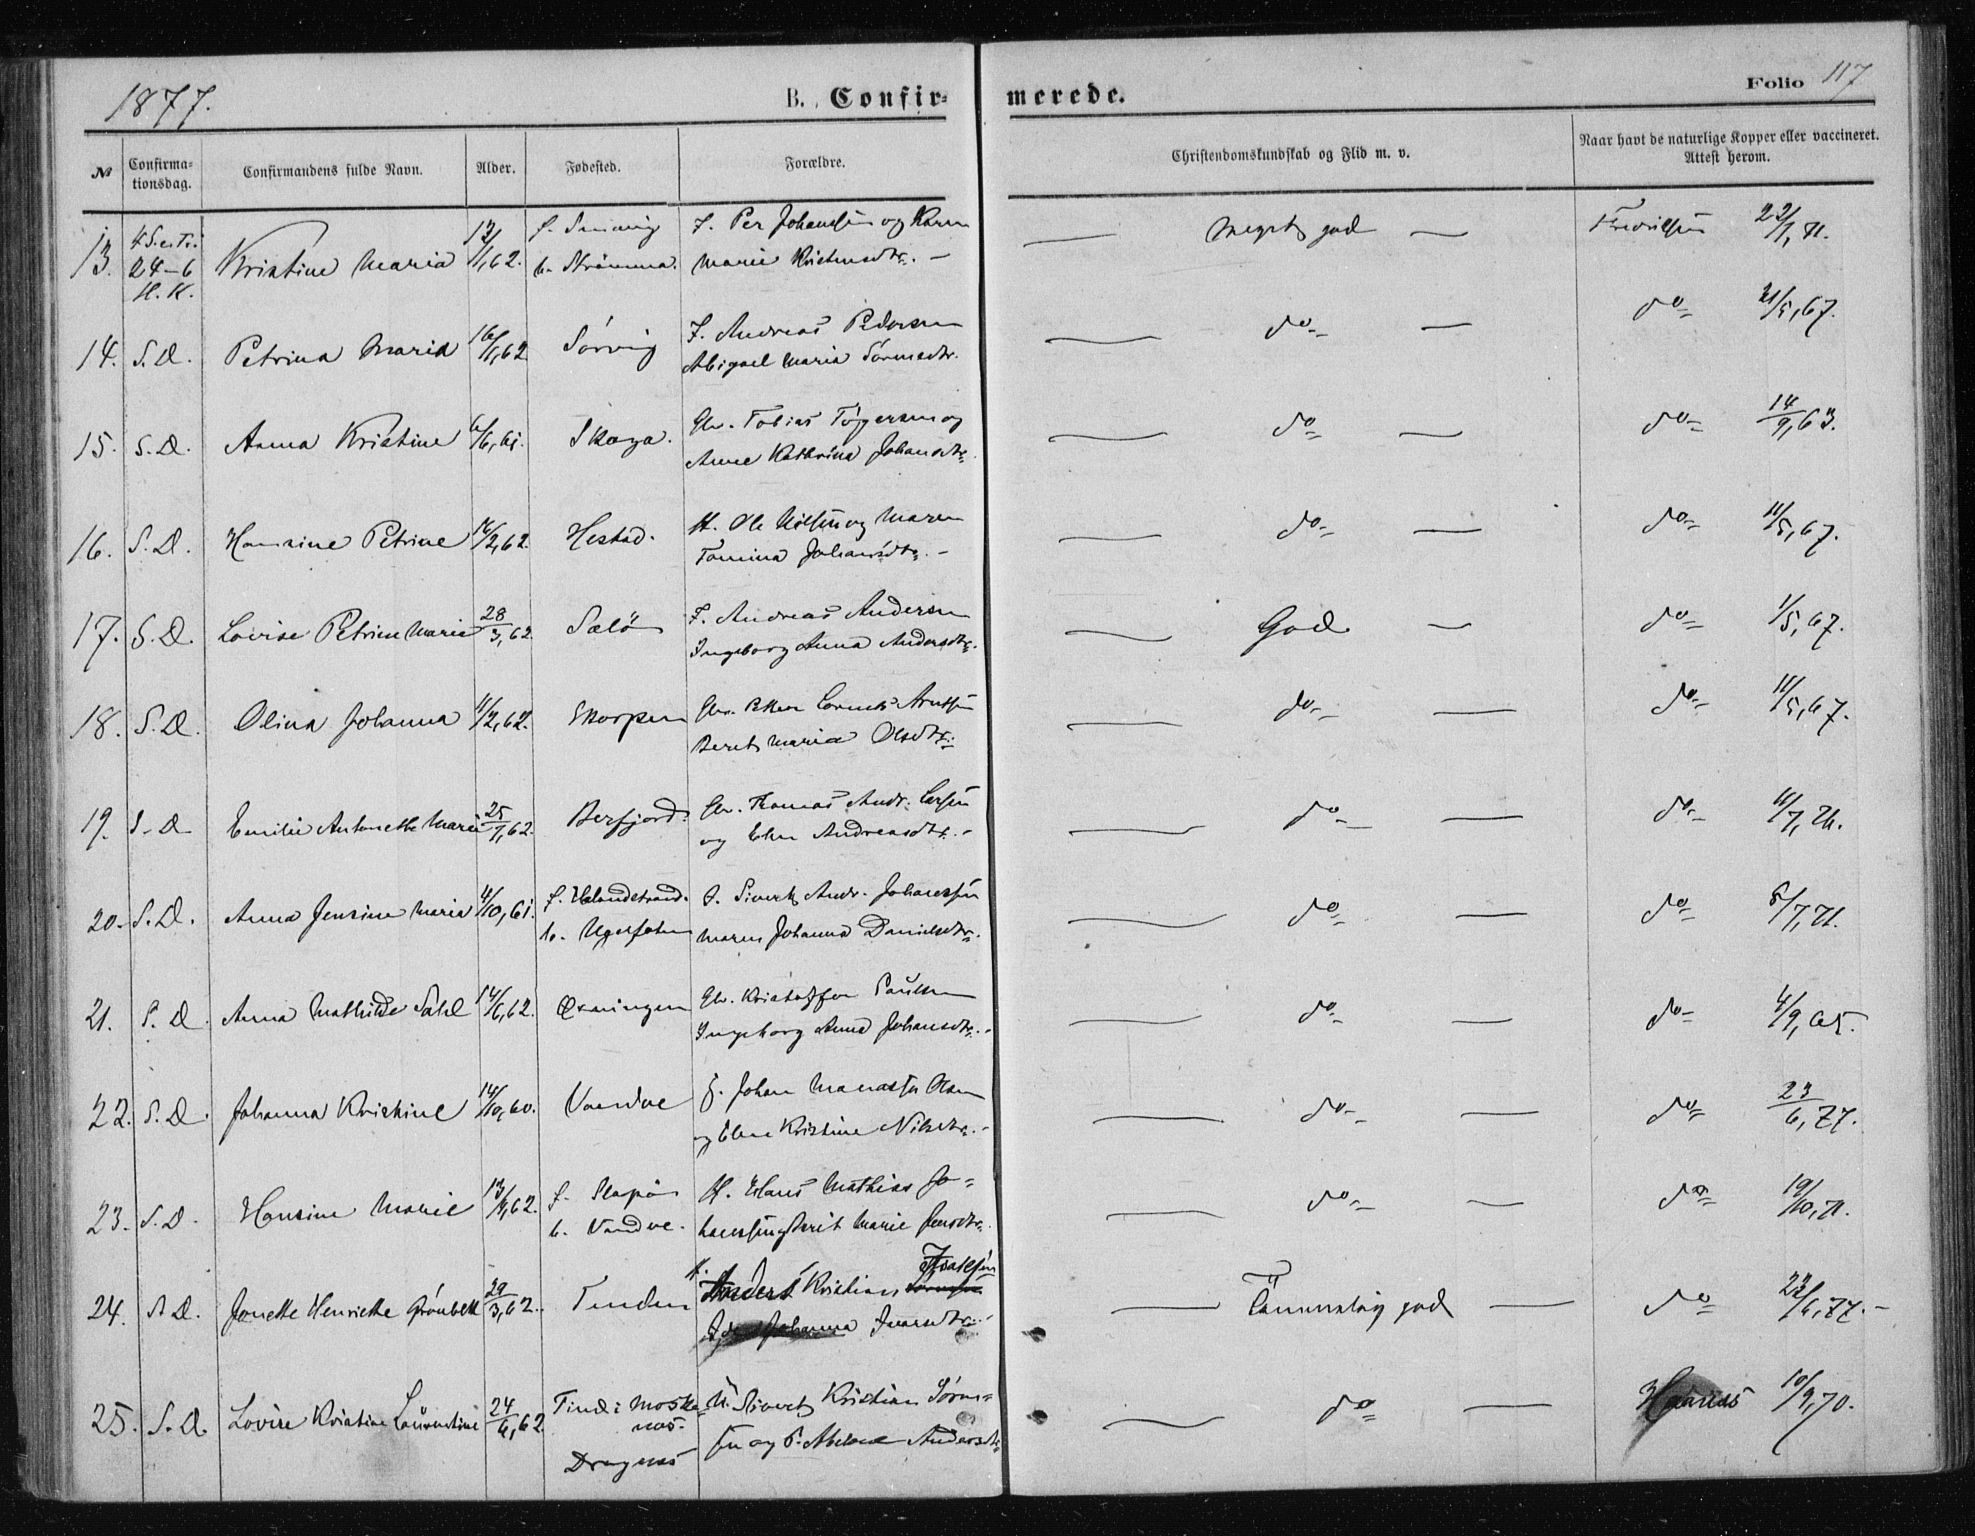 1877.
B. Confir-
merede.
Folio 117
№
Confirma-
tionsdag.
Confirmandens fulde Navn.
Alder.
Fødested.
Forældre.
Christendomskundskab og Flid m. v.
Naar havt de naturlige Kopper eller vaccineret.
Attest herom.
13. 4 S. e. Tr. 24-6 H. K. Kristine Maria 12/1,62. b. Strømma. F. Per Johansen og Karen
Marie Kristensdtr. - Meget god 22/1,71.
14. S. D. Petrina Maria 16/1,62 Sørvig F. Andreas Pedersen
Abigael Maria Sørensdtr. do do 21/5,67.
15. S. D. Anna Kristine 6/6,61. Skaga. Gbr. Tobias Tøgersen og
Anne Kathrina Johansdtr. do do 14/9,63.
16. S. D. Hansine Petrine 16/2,62. Hestad. H. Ole Nilsen og Maren
Tomina Johansdtr. - do do 11/5,67.
17. S. D. Lovise Petrine Marie 28/3,62. Salø F. Andreas Andersen
Ingeborg Anna Andersdtr. God do 1/5,67.
18. S. D. Olina Johanna 11/2,62. Skorpen Gbr. Petter Arntsen
Beret Maria Olsdtr. do do 11/5,67.
19. S. D. Emilie Antonette Marie 25/1,62. Berfjord. Gbr. Thomas Andr. Larsen
og Elen Andreasdtr. - do do 11/7,76.
20. S. D. Anna Jensine Maria 4/10,61. f. Halandstrand. Sivert Andr. Johansen
Maren Johanna Danielsdtr. do do 6/7,71.
21. S. D. Anna Mathilde 14/6,62. Gbr. Kristoffer Paulsen
Ingeborg Anna Johansdtr. - do do 4/9,65.
22. S. D. Johanna Kristine 14/10,60. Vandve Johan Manasse Olsen
og Elen Kristine Nilsdtr. - do do 23/6,77.
23. S. D. Hansine Marie 13/4,62. f. Slapø
b. Vandve. H. Hans Mathias Jo-
hansen og Berit Marie Jensdtr. do do 19/10,71.
24. S. D. Jonette Henriette Grønbek 29/3,62. Tenden Anders Kristian Isaksen
Johanna Ivarsdtr. - Temmelig god do 23/6,77. -
25. S. D. Lovise Kristine Laurentine 24/6,62 Tind i Moske-
nes.
Dragnes U. Sivert Kristian Søren-
sen og P. Abelone Andersdtr. do 10/9,70.